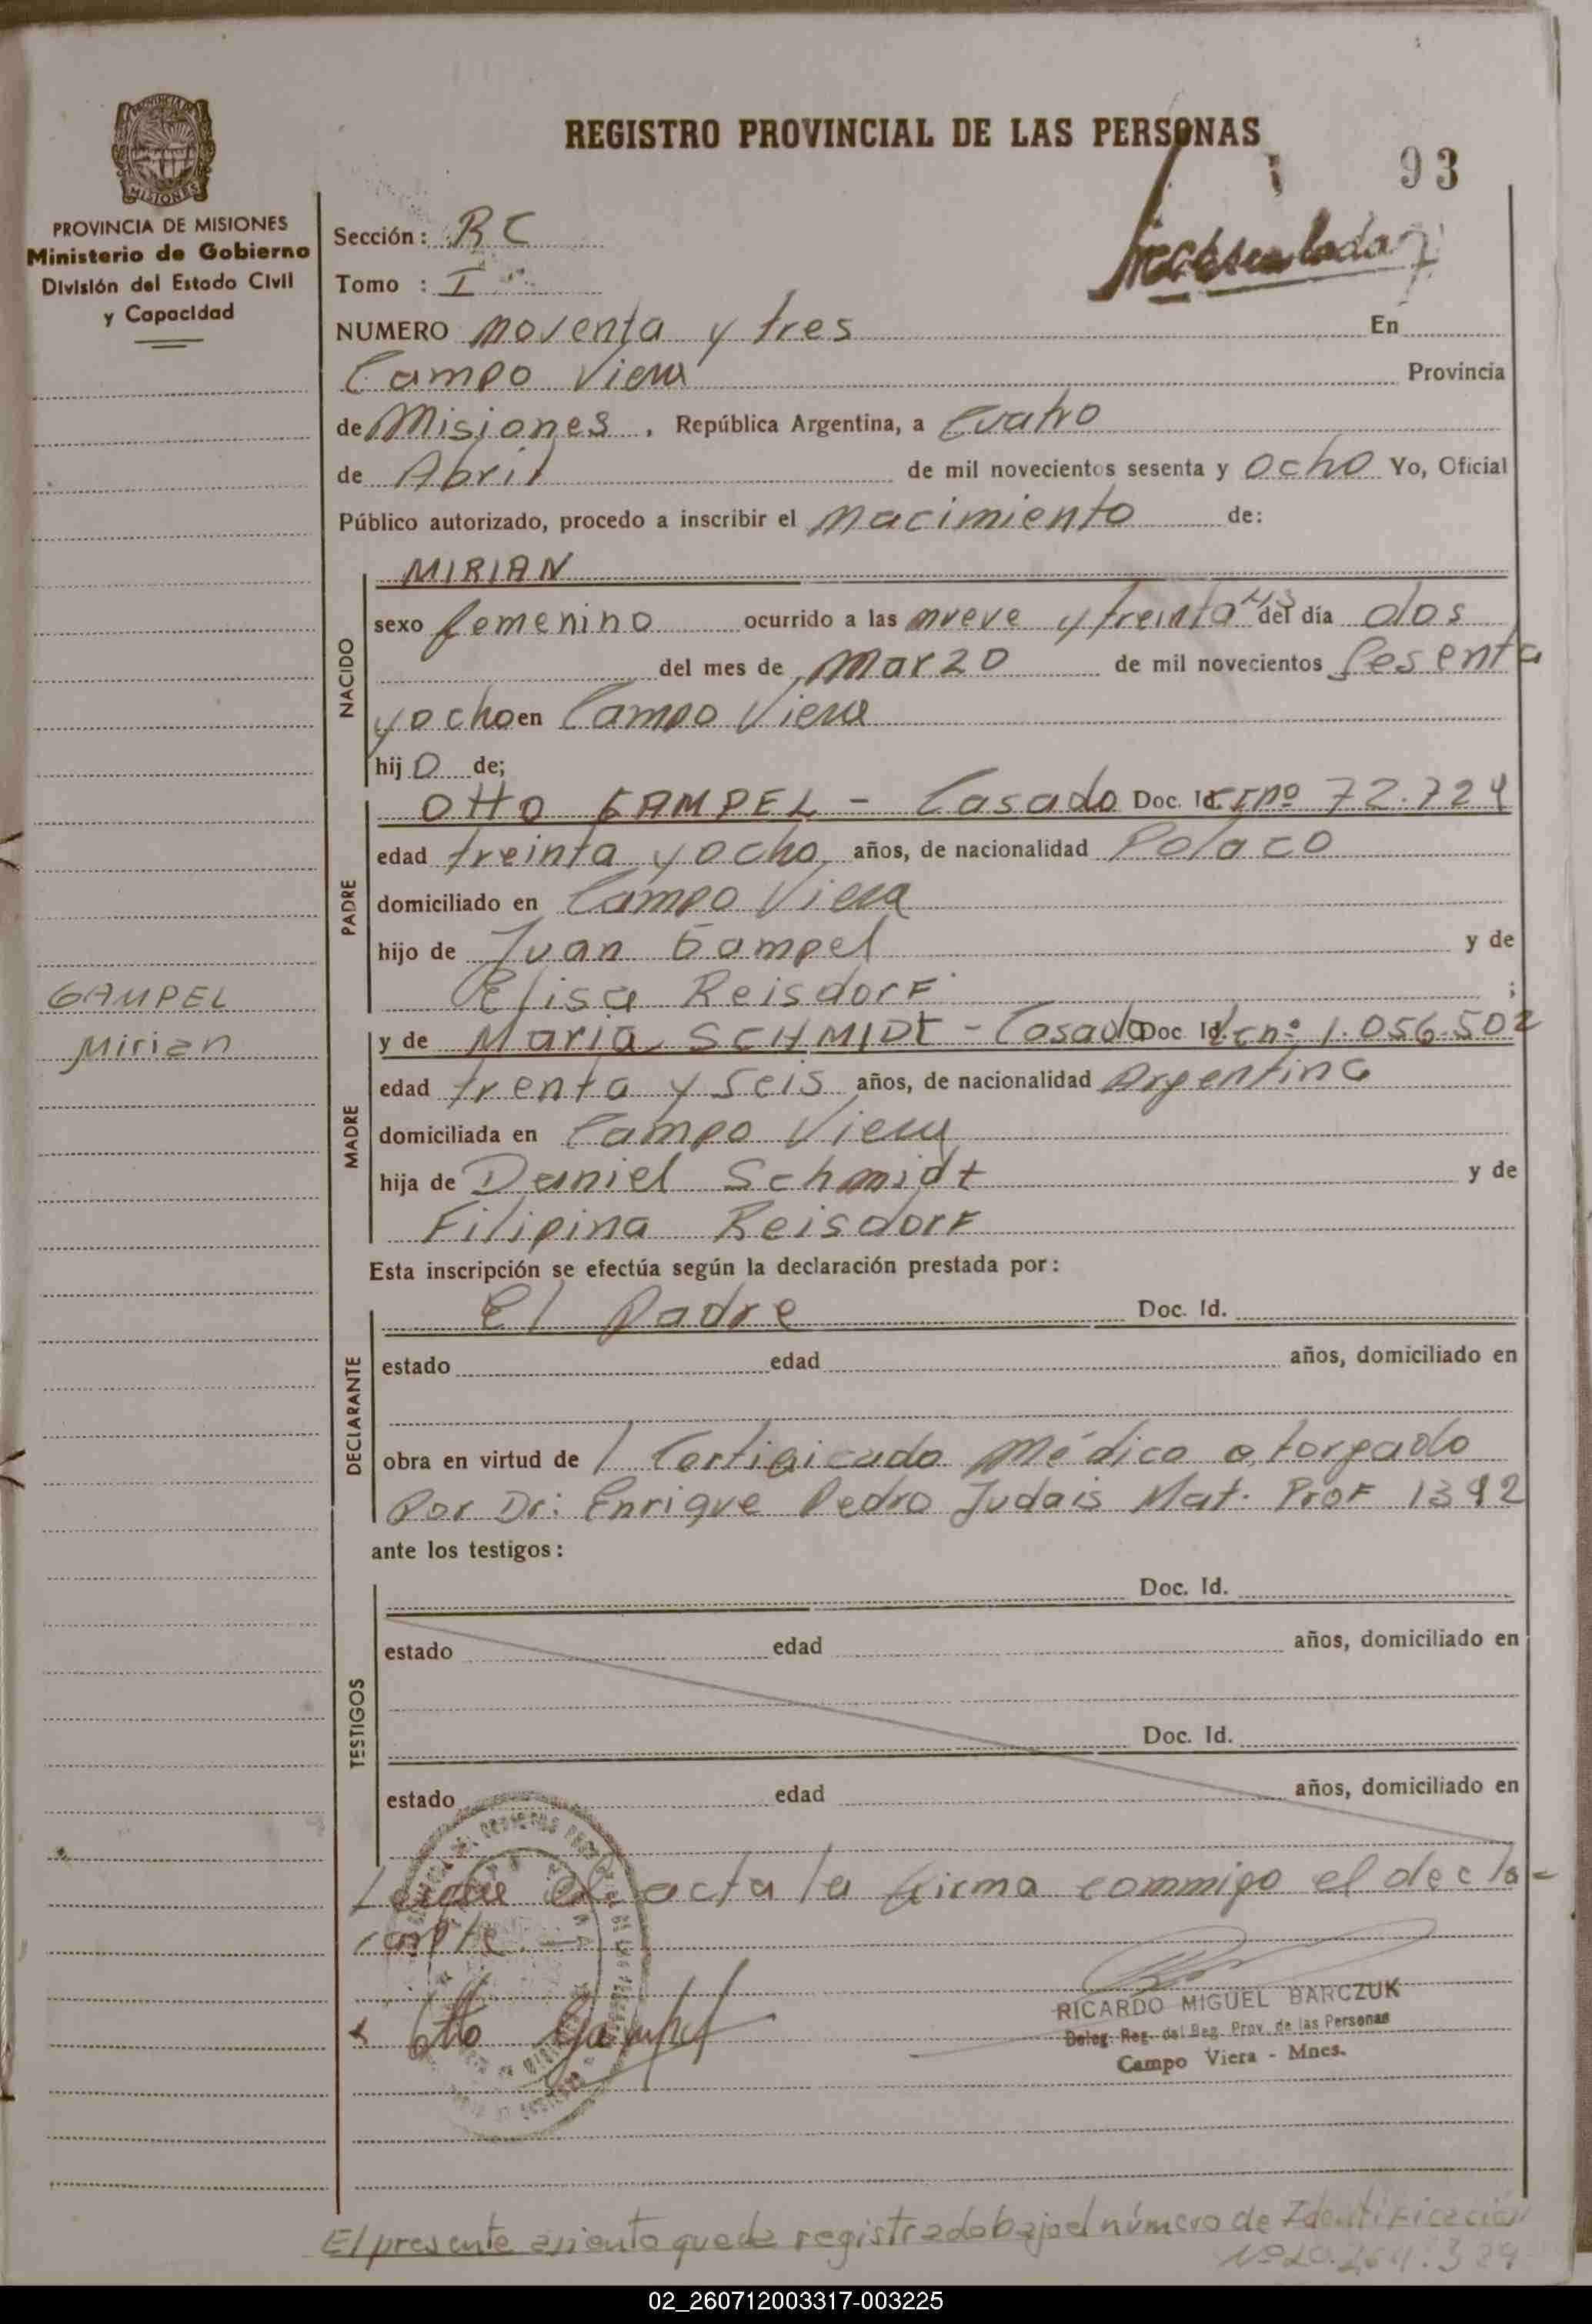 REGISTRO PROVINCIAL DE LAS PERSONAS
93
PROVINCIA DE MISIONES
Ministerio de Gobierno
División del Estado Civil
y Capacidad
Sección: RC
Tomo : I
NUMERO noventa y tres En
Campo Viera Provincia
de Misiones, República Argentina, a Cuatro
de Abril de mil novecientos sesenta y ocho Yo, Oficial
Público autorizado, procedo a inscribir el nacimiento de:
NACIDO
MIRIAN
sexo femenino ocurrido a las nueve y treinta hs del día dos
del mes de Marzo de mil novecientos sesenta
y ocho en Campo Viera
hijo de;
PADRE
Otto GAMPEL - Casado Doc. Id. nº 72.724
edad treinta y ocho años, de nacionalidad Polaco
domiciliado en Campo Viera
hijo de Juan Gampel y de
Elisa Reisdorf ;
GAMPEL
Mirian
MADRE
y de Maria SCHMIDT - Casada Doc. Id. nº 1.056.502
edad trenta y seis años, de nacionalidad Argentina
domiciliada en Campo Viera
hija de Daniel Schmidt y de
Filipina Reisdorf
Esta inscripción se efectúa según la declaración prestada por:
DECLARANTE
El Padre Doc. Id.
estado edad años, domiciliado en
obra en virtud de 1 Certificado Médico otorgado
Por Dr: Enrique Pedro Judais Mat. Prof 1392
ante los testigos:
TESTIGOS
Doc. Id.
estado edad años, domiciliado en
Doc. Id.
estado edad años, domiciliado en
acta la firma commigo el decla=
rante.
Otto Gampel
RICARDO MIGUEL BARCZUK
Deleg. Reg. del Reg. Prov. de las Personas
Campo Viera - Mnes.
El presente asiento queda registrado bajo el número de Identificación
Nº 20.264.329
02_260712003317-003225